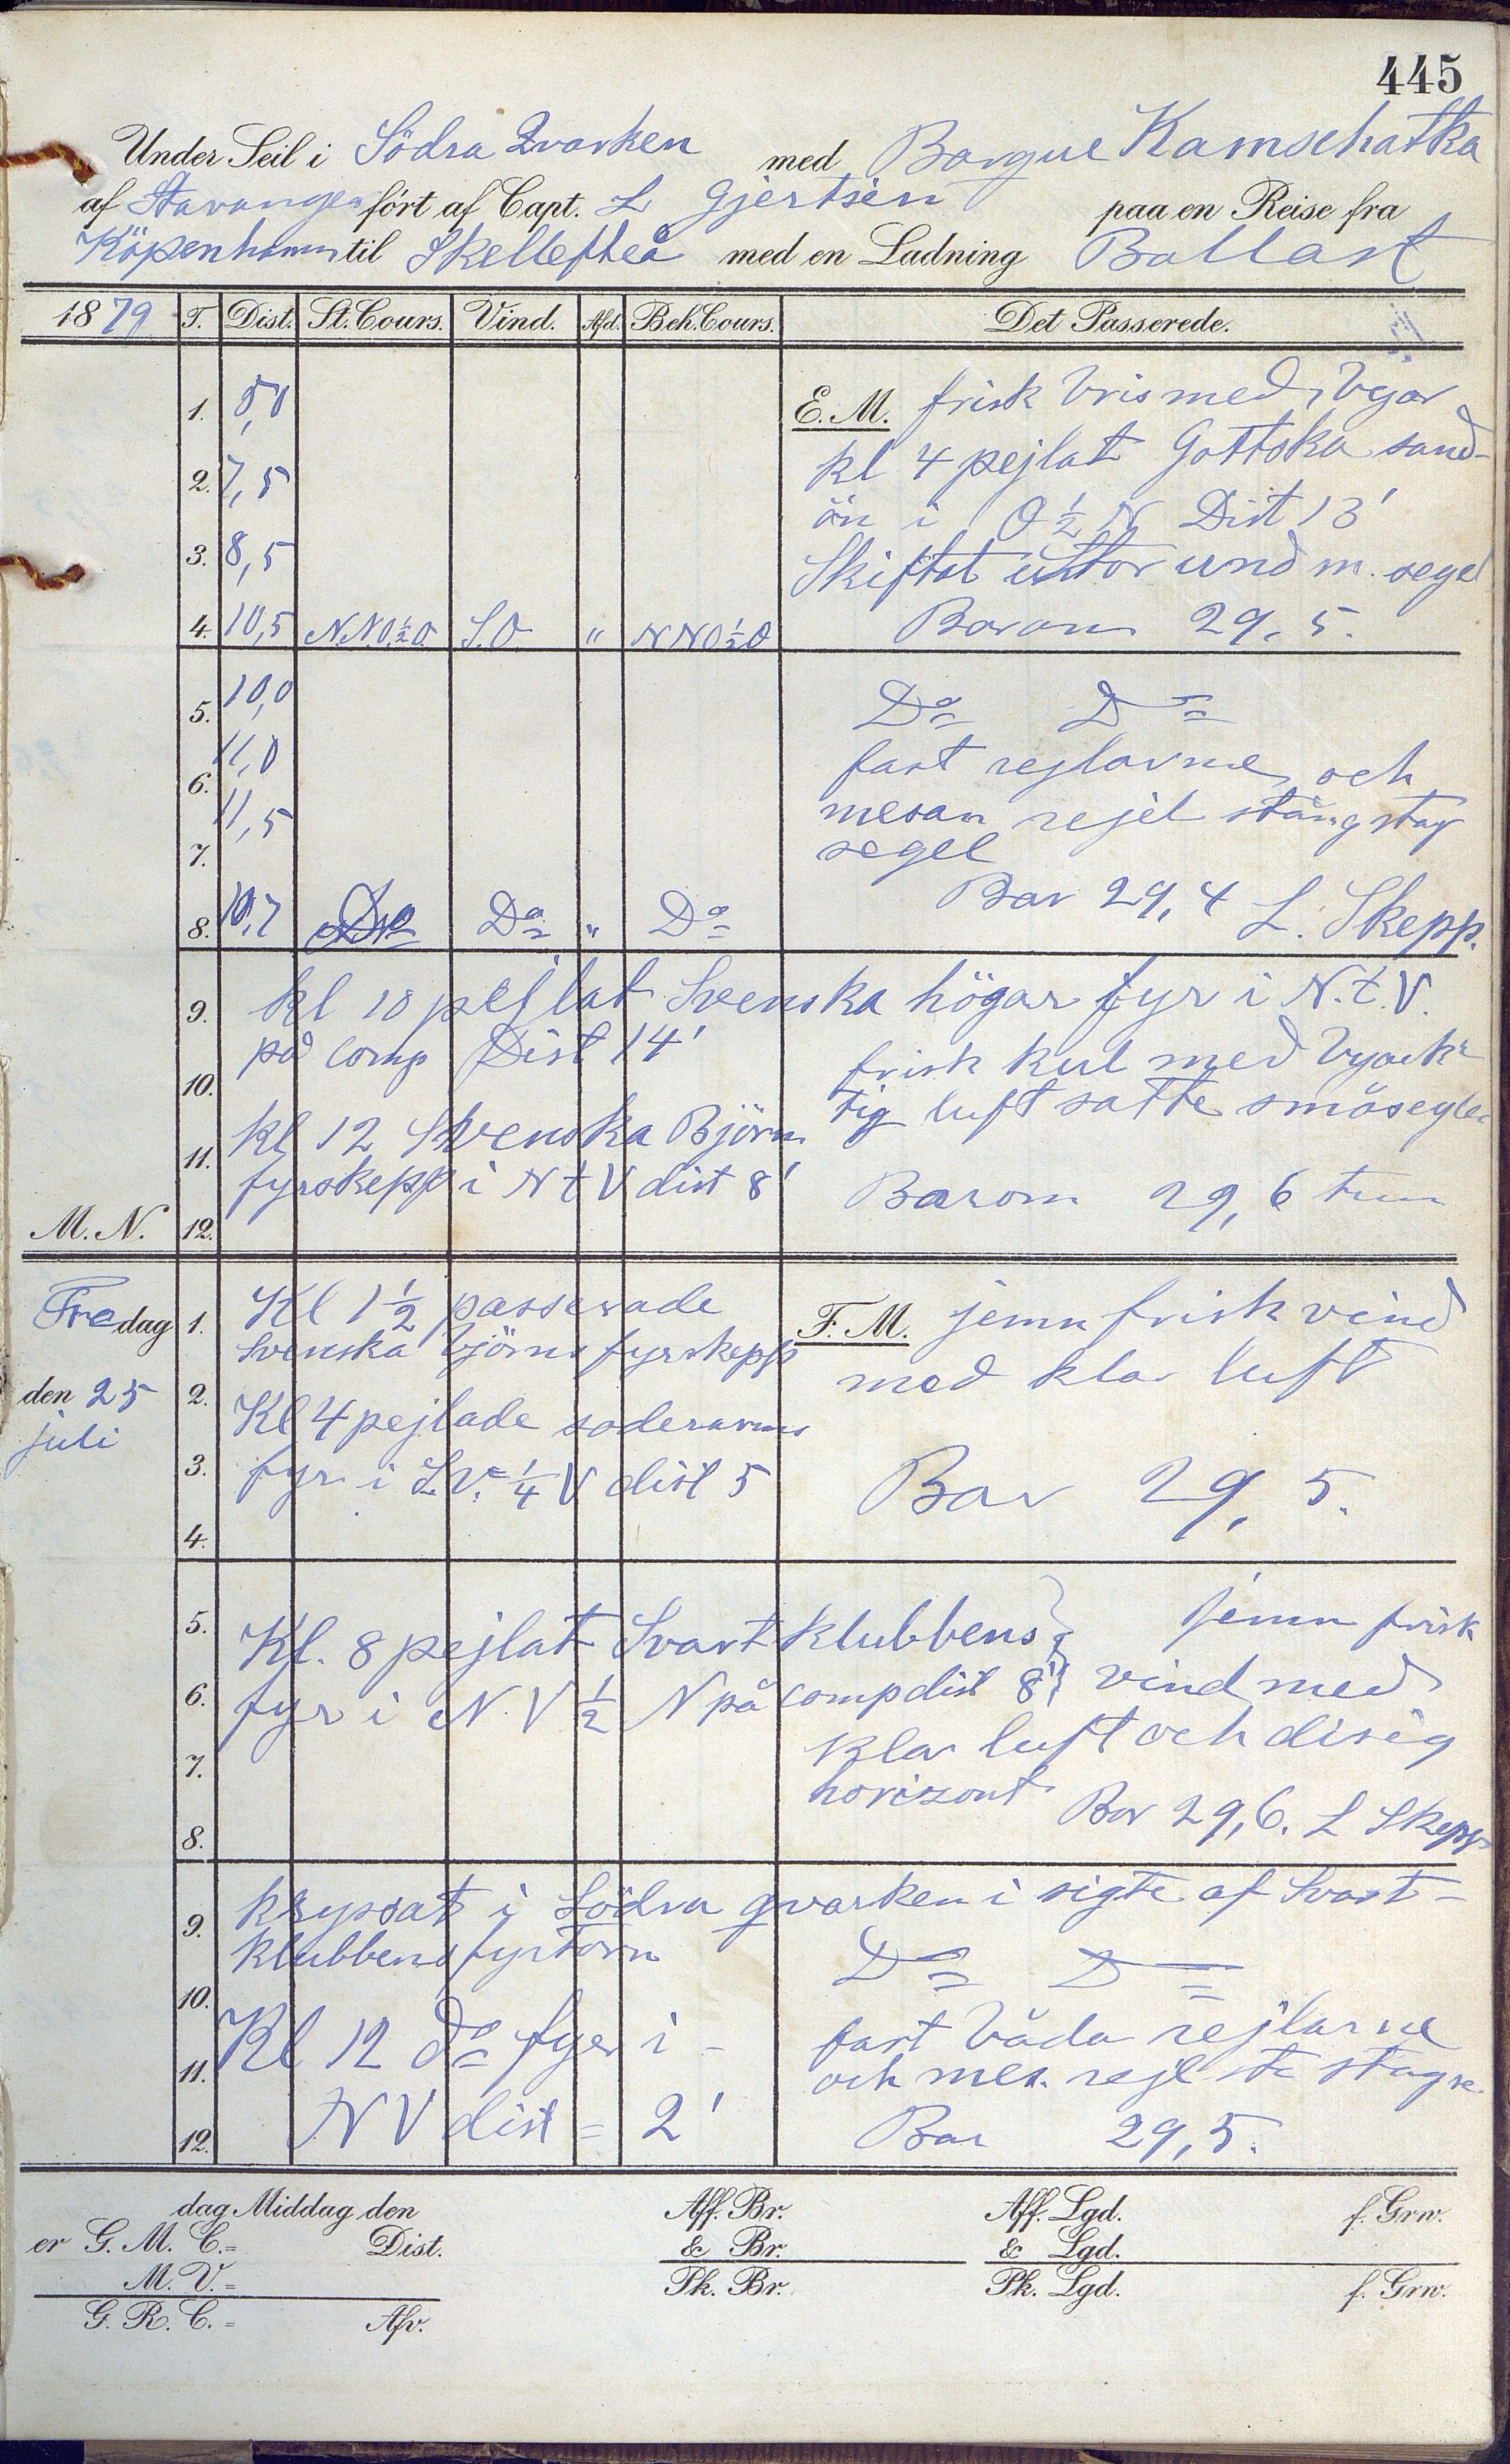 445
Under Seil i Södra Qvarken med Barque Kamschatka
af Stavanger fört af Capt. L Gjertsen paa en Reise fra
Köpenhamn til Skellefteå med en Ladning Ballast
1879 T. Dist. St. Cours. Vind. Afd. Beh. Cours. Det Passerede.
1. E. M. frisk bris med byar
2. 7,5 kl 4 pejlat Gottska sand-
ön i O ½ N Dist 13'
3. 8,5 Skiftat und m. segel
4. 10,5 N.N.O.½O. S.O. " NNO½O Barom 29,5.
5. 10,0 Do Do
6. 11,0 fast rejlarne och
7. 11,5 mesan rejel stängstag
segel
Bar 29,4 L. Skepp.
8. 10,7 Do Do " Do
9. kl 10 pejlat Svenska högar fyr i N.t.V.
på comp Dist 14'
10. frisk kul med byack
tig luft satte småseglen
11. kl 12 Svenska Björn
fyrskepp i N t V dist 8' Barom 29,6 tum
M. N. 12.
Fredag 1. Kl 1½ passerade F. M. jemn frisk vind
Svenska björns fyrskepp
den 25 2. med klar luft
juli Kl 4 pejlade soderarms
3. fyr i S.V. ¼ V dist 5 Bar 29,5.
4.
5. Kl. 8 pejlat Svartklubbens jemn frisk
6. fyr i N.V ½ N på comp dist 8' vind med
7. klar luft och disig
horizont Bar 29,6. L Skepp
8.
9. kryssat i Södra qvarken i sigte af Svart-
klubbens fyrtorn
10. Do Do
Kl 12 do fyer i - fast båda rejlarne
11. och mes. rejl st stagse.
NV dist = 2' Bar 29,5.
12.
dag Middag den Aff. Br. Aff. Lgd. f. Grw.
er G. M. C.= Dist. & Br. & Lgd.
M. V.= Pk. Br. Pk. Lgd. f. Grw.
G. R. C.= Afv.